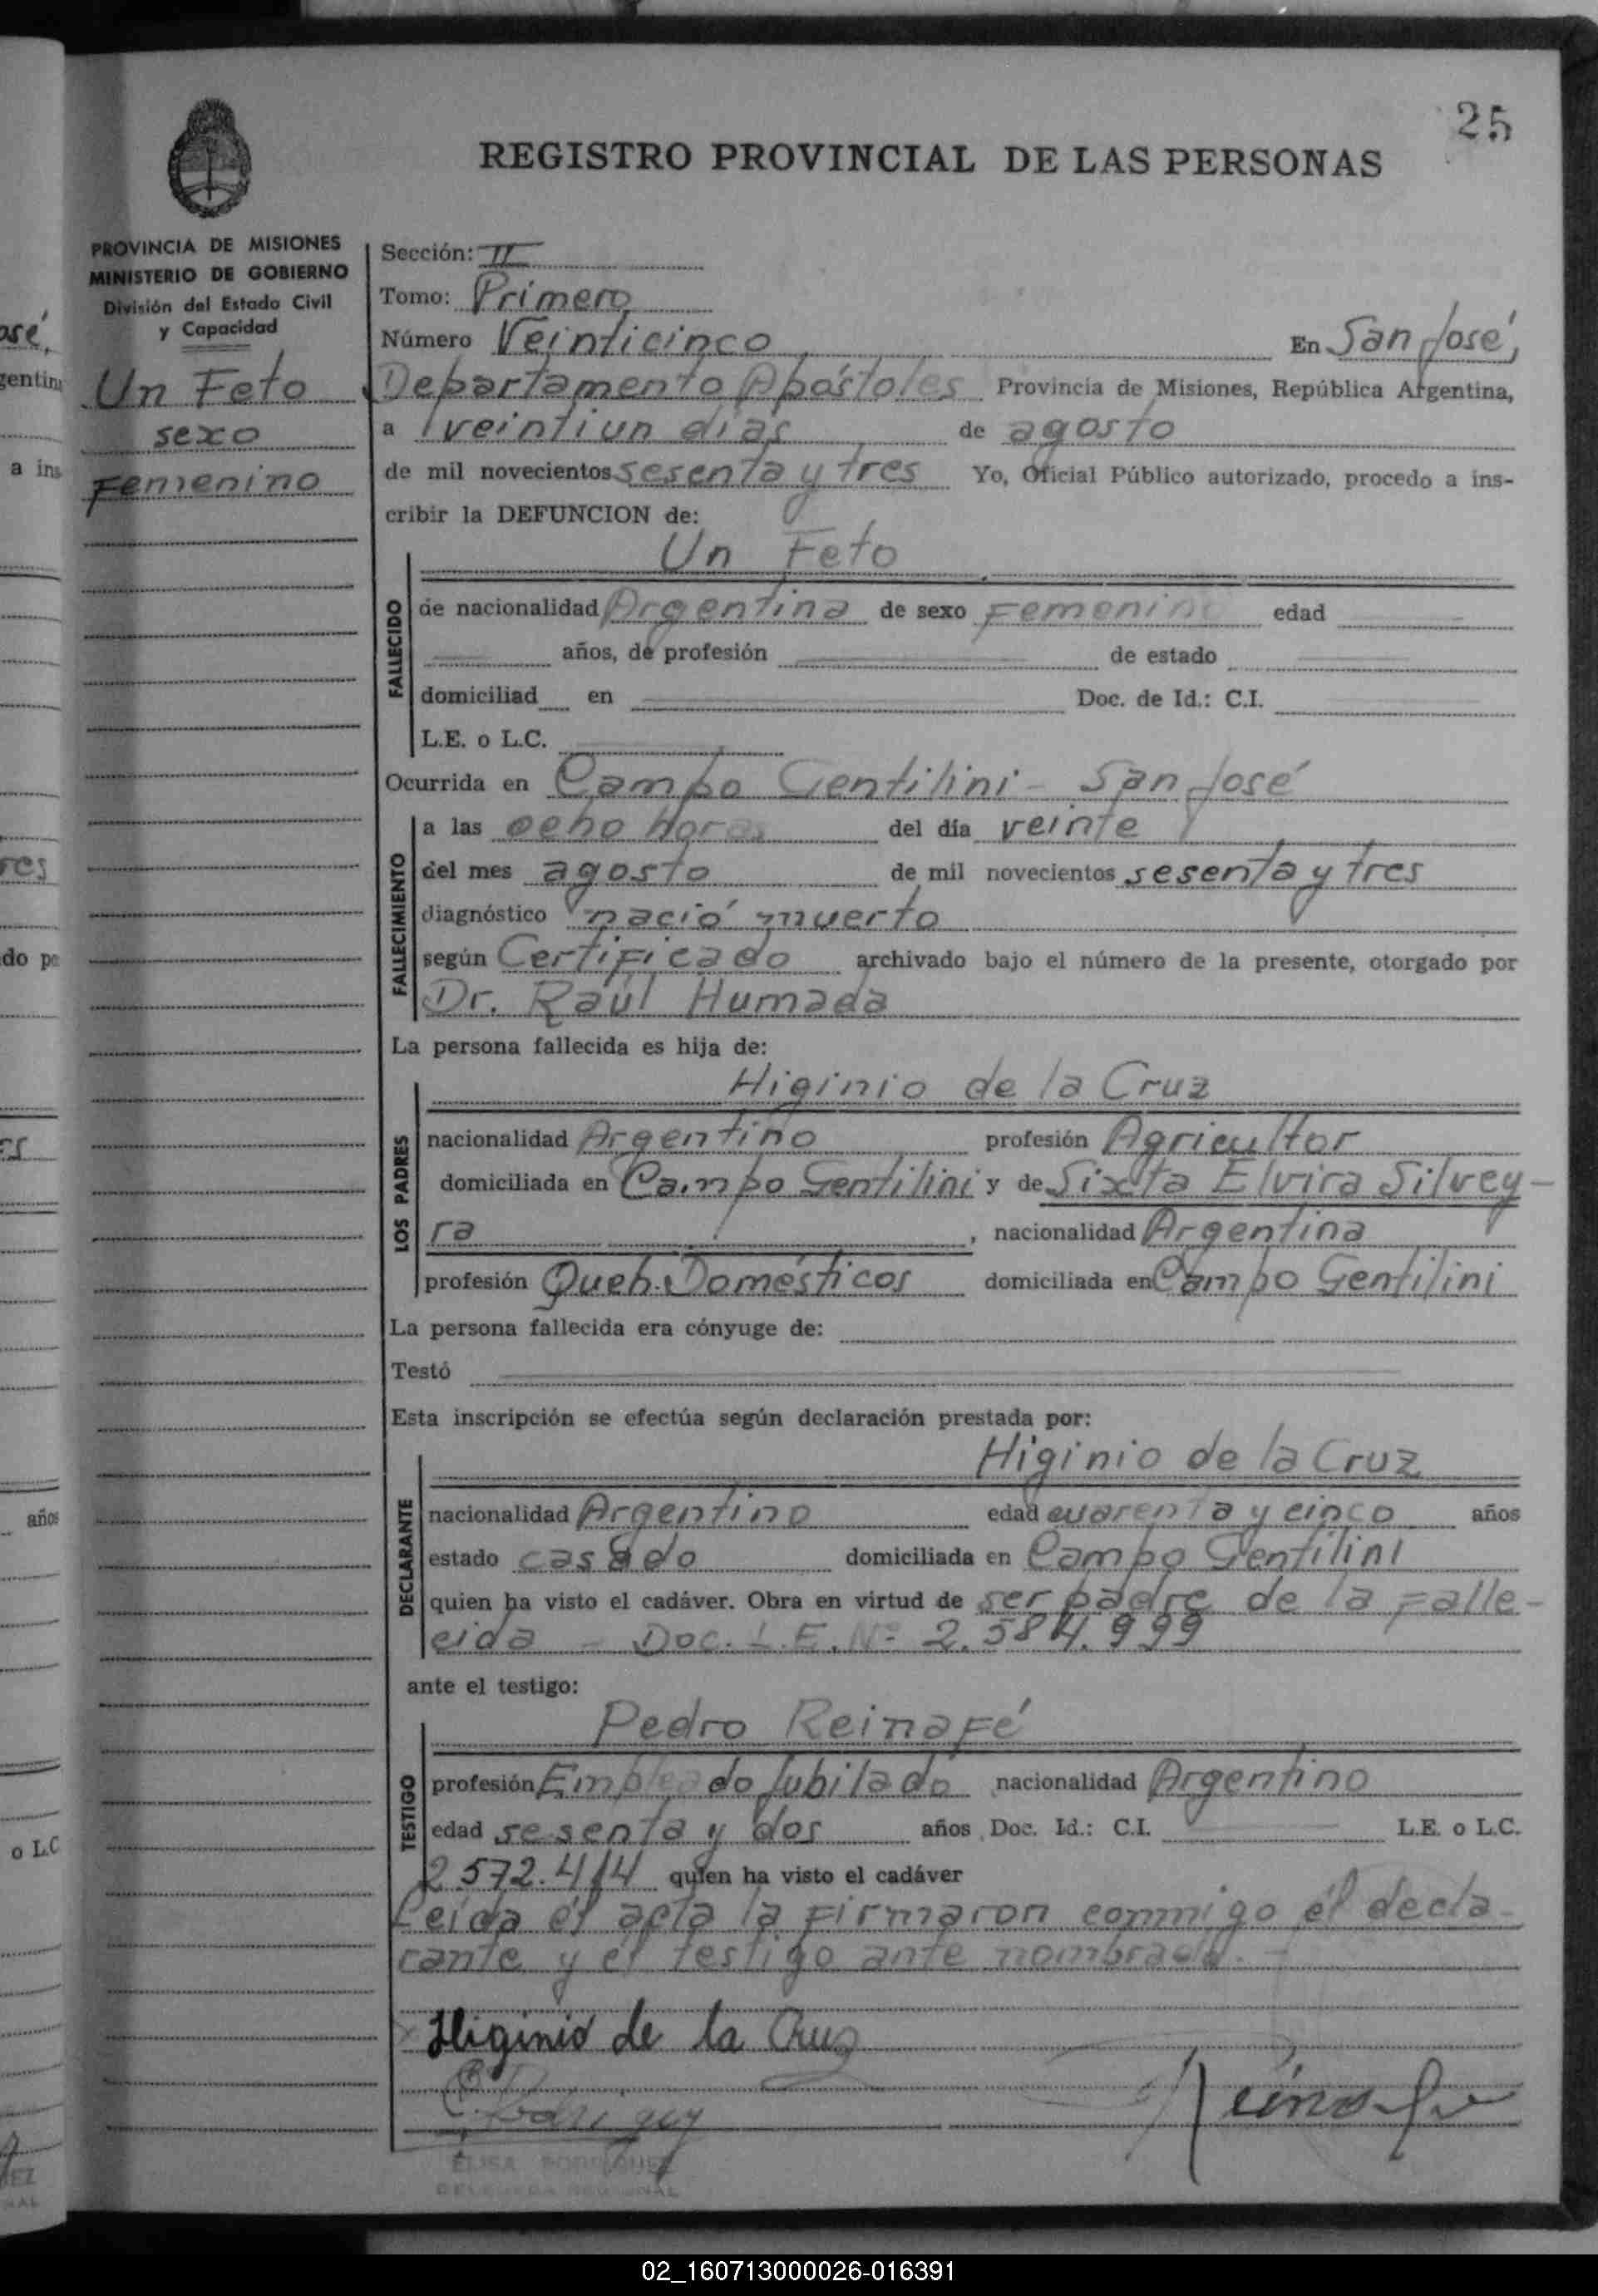 25
REGISTRO PROVINCIAL DE LAS PERSONAS
PROVINCIA DE MISIONES
MINISTERIO DE GOBIERNO
División del Estado Civil
y Capacidad
Un Feto
sexo
Femenino
Sección: II
Tomo: Primero
Número Veinticinco En San José,
Departamento Apóstoles Provincia de Misiones, República Argentina,
a veintiun días de agosto
de mil novecientos sesenta y tres Yo, Oficial Público autorizado, procedo a ins-
cribir la DEFUNCION de:
Un Feto
FALLECIDO
de nacionalidad Argentina de sexo Femenino edad
años, de profesión de estado
domiciliad en Doc. de Id.: C.I.
L.E. o L.C.
Ocurrida en Campo Gentilini - San José
FALLECIMIENTO
a las ocho horas del día veinte
del mes agosto de mil novecientos sesenta y tres
diagnóstico nació muerto
según Certificado archivado bajo el número de la presente, otorgado por
Dr. Raúl Humada
La persona fallecida es hija de:
LOS PADRES
Higinio de la Cruz
nacionalidad Argentino profesión Agricultor
domiciliada en Campo Gentilini y de Sixta Elvira Silvey-
ra, nacionalidad Argentina
profesión Queh. Domésticos domiciliada en Campo Gentilini
La persona fallecida era cónyuge de:
Testó
Esta inscripción se efectúa según declaración prestada por:
DECLARANTE
Higinio de la Cruz
nacionalidad Argentino edad cuarenta y cinco años
estado casado domiciliada en Campo Gentilini
quien ha visto el cadáver. Obra en virtud de ser padre de la falle-
cida - Doc. L.E. Nº 2.584.999
ante el testigo:
TESTIGO
Pedro Reinafé
profesión Empleado Jubilado nacionalidad Argentino
edad sesenta y dos años Doc. Id.: C.I. L.E. o L.C.
2572.414 quien ha visto el cadáver
Leída el acta la firmaron conmigo el decla-
rante y el testigo ante nombrado. -
Higinio de la Cruz
Rodriguez Reinafé
ELISA RODRIGUEZ
DELEGADA REGIONAL
02_160713000026-016391